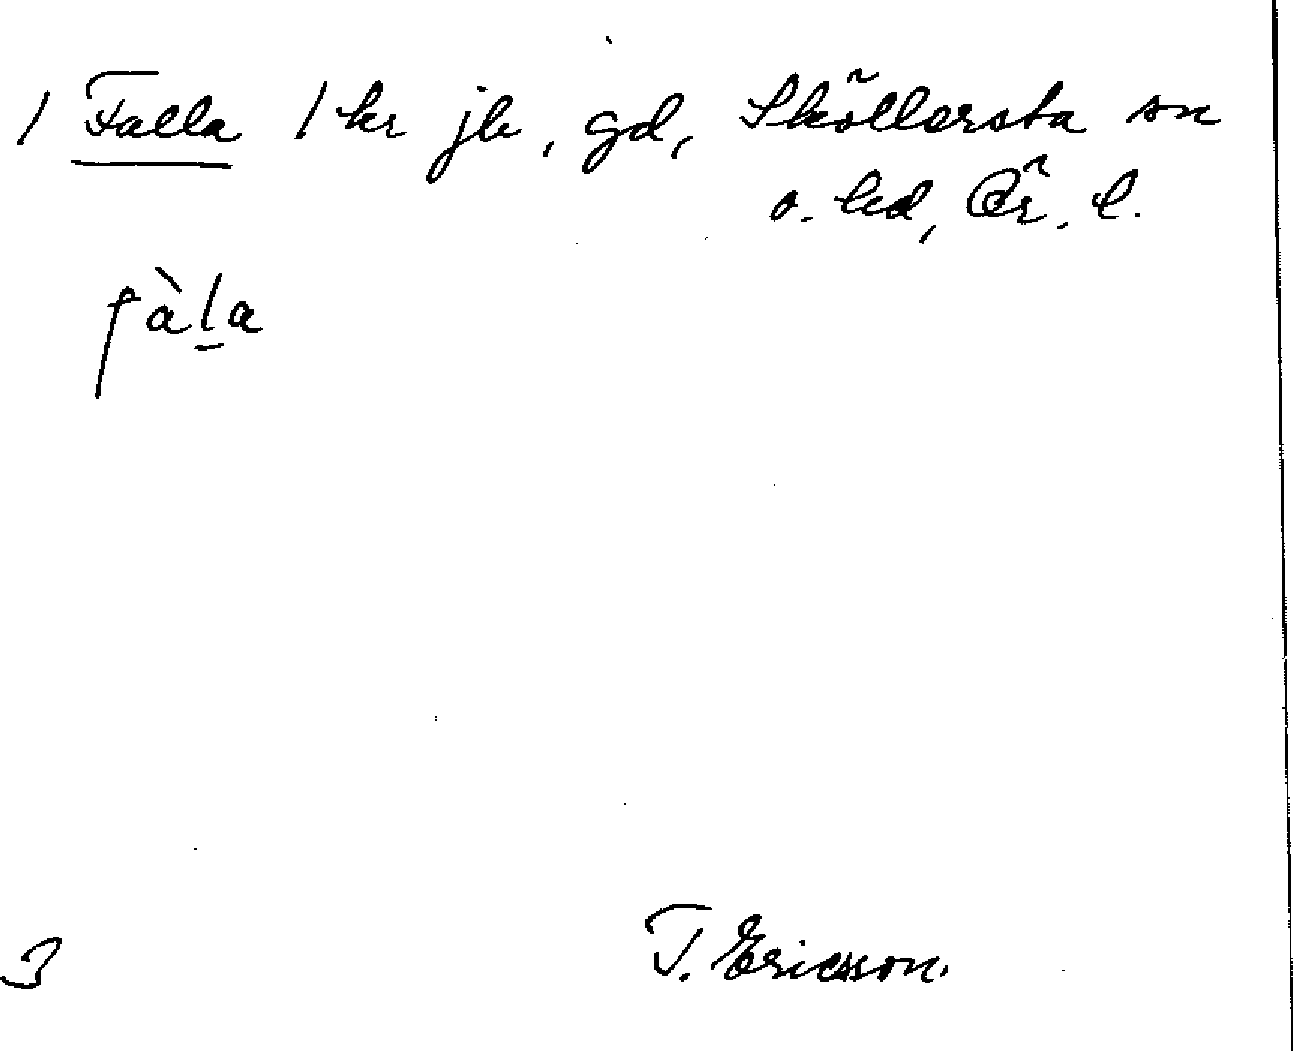 1 Falla 1 kr jb, gd, Sköllersta sn
o. hd, Ör. l.
fàḻa
3 T. Ericsson.